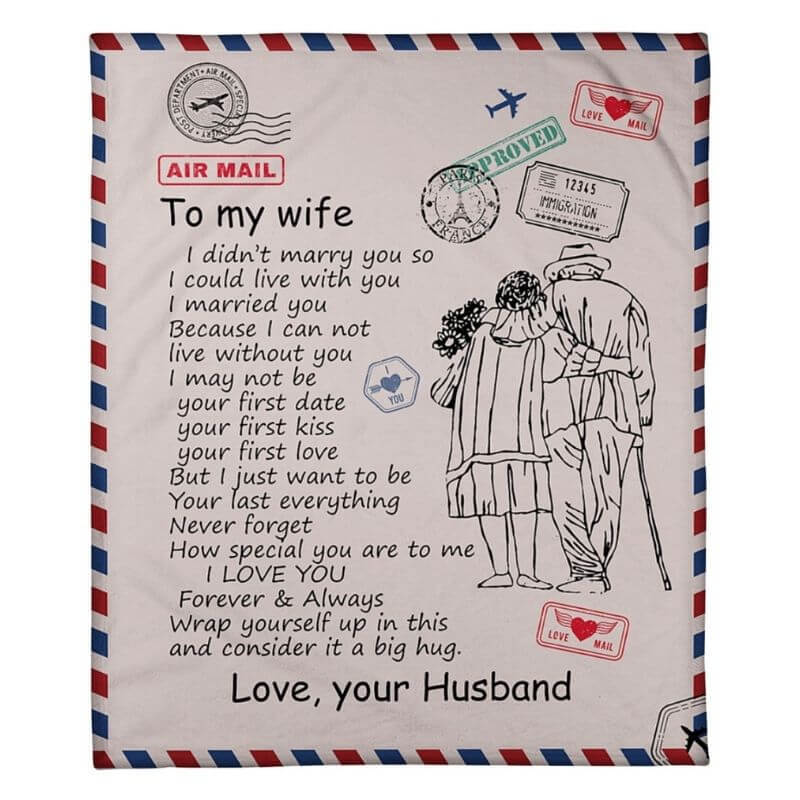 POST DEPARTMENT • AIR MAIL • SPECIAL DELIVERY •
AIR MAIL
LOVE MAIL
APPROVED
PARIS
FRANCE
12345
IMMIGRATION
To my wife
I didn't marry you so
I could live with you
I married you
Because I can not
live without you
I may not be
your first date
your first kiss
your first love
But I just want to be
Your last everything
Never forget
How special you are to me
I LOVE YOU
Forever & Always
Wrap yourself up in this
and consider it a big hug.
Love, your Husband
I
YOU
LOVE MAIL